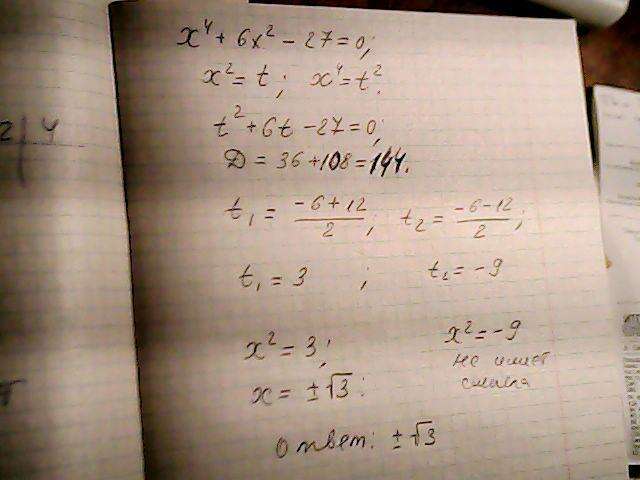 x⁴ + 6x² − 27 = 0;
x² = t; x⁴ = t².
t² + 6t − 27 = 0;
D = 36 + 108 = 144.
t₁ = (−6 + 12)/2; t₂ = (−6 − 12)/2;
t₁ = 3 ; t₂ = −9
x² = 3; x² = −9
не имеет
смысла
x = ±√3;
Ответ: ±√3